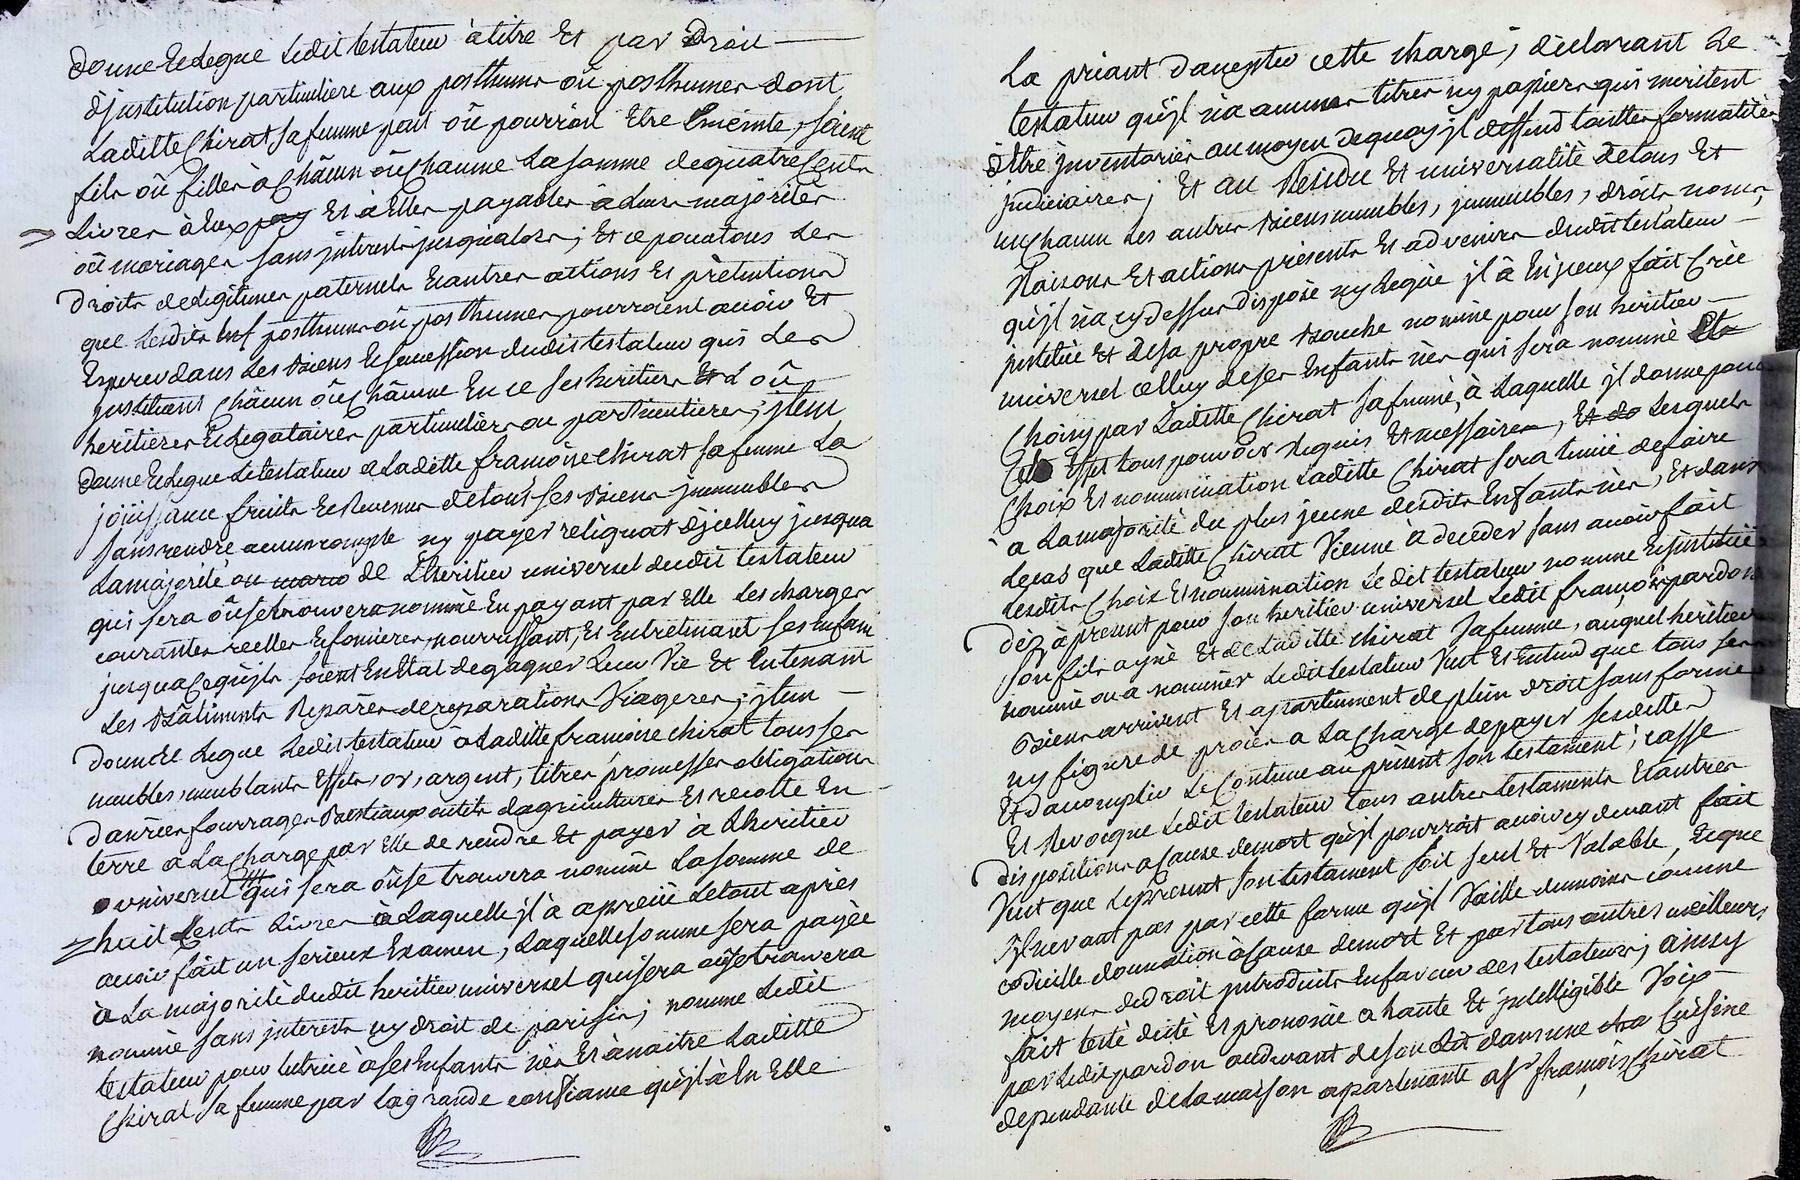 donne Et Legue Ledit testateur à titre Et par Droit
d'jnstitution particuliere aux posthume oû posthumes dont
Laditte Chirat sa femme peut oû pourroit Etre Enceinte, soient
fils oû filles à Châcun oû Chacune La somme de quatre Cents
Livres à Eux pay Et à Elles payables à Leurs majorités
oû mariages sans jnterets jusqu'alors; Et ce pour tous Les
Droits de Legitimes paternels Et autres actions Et prètentions
que Lesdits posthumes oû posthumes pourroient avoir Et
Esperer dans Les Biens Et succession dudit testateur qui Les
jnstituent Châcun oû Châcune En ce ses heritiers Et L oû
heritieres Et Legataires particuliers ou particulieres; jtem
donne Et Legue Le testateur a Laditte francoise Chirat sa femme La
joüissance fruits Et Revenus de tout ses Biens jmmeubles
sans rendre aucun compte ny payer reliquat d'jcelluy jusqua
La majorité ou mario de L'heritier universel dudit testateur
qui sera oû se trouvera nommé En payant par Elle Les charges
courantes reelles Et foncieres, nourrissant, Et Entretenant ses Enfans
jusqu'a Ce qu'jls soient En Etat de gagner Leur Vie Et En tenant
Les Bâtiments Reparés de reparations Viageres; jtem
donne Et Legue Ledit testateur à Laditte francoise chirat tous ses
meubles, meublants Effets, or, argent, titres promesses obligations
danrées fourrages Bestiaux outils d'agricultures Et recolte En
terre a La Charge par Elle de rendre Et payer à L'heritier
universel qui sera oû se trouvera nommé La somme de
huit Cents Livres à Laquelle jl à aprecié Le tout après
avoir fait un serieux Examen, Laquelle somme sera payée
à La majorité dudit heritier universel qui sera oû se trouvera
nommé sans jnterets ny droit de parisis; nomme Ledit
testateur pour tutrice à ses Enfants nés Et à naitre Laditte
Chirat sa femme par La grande confiance qu'jl à En Elle
La priant d'accepter cette charge, déclarant Le
testateur qu'jl n'a aucuns titres ny papiers qui meritent
d'Etre jnventoriés au moyen de quoy jl deffend touttes formalités
judiciaires; Et au Residu Et universalité de tous Et
un chacun Les autres Biens meubles, jmmeubles, droits, noms,
Raisons Et actions présents Et advenirs dudit testateur
qu'jl n'a cy dessus disposé ny Legüé jl à En jceux fait Créé
jnstitüé Et de sa propre Bouche nommé pour son heritier
universel celluy de ses Enfants nés qui sera nommé Et
Choisy par Laditte Chirat sa femme, à Laquelle jl donne pour
Effet tous pouvoirs Requis Et necessaires, Et do Lesquels
Choix Et nommination Laditte Chirat sera tenüe de faire
à La majorité du plus jeune desdits Enfants nés, Et dans
Le cas que Laditte Chirat Vienne à deceder sans avoir fait
Lesdits Choix Et nommination Le dit testateur nomme Et jnstitüe
dèz à present pour son heritier universel Ledit francois pardon
son fils aÿné Et de Laditte chirat sa femme, auquel heritier
nommé ou a nommer Ledit testateur Veut Et Entend que tous ses
Biens arrivent Et apartiennent de plein droit sans forme
ny figure de procés a La Charge de payer ses dettes
Et d'accomplir Le Contenu au présent son testament; casse
Et Revocque Ledit testateur tous autres testaments Et autres
dispositions a Cause de mort qu'jl pourroit avoir cy devant fait
Veut que Le present son testament soit seul Et Valable, Et que
s'jl ne vaut pas par cette forme qu'jl Vaille du moins comme
codicille donnation à Cause de mort Et par tous autres meilleurs
moyens de droit jntroduits En faveur des testateurs; ainsy
fait testé dicté Et prononcé a haute Et jntelligible Voix
par Ledit pardon au devant de son Lit dans une cha Cuisine
dependante de La maison apartenante a Sr francois Chirat